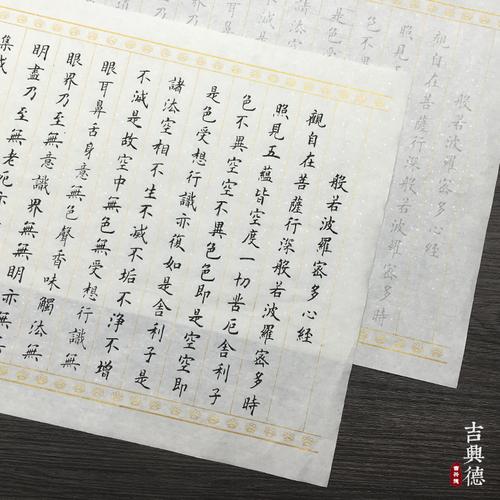 般若波羅密多心經
觀自在菩薩行深般若波羅密多時
照見五蘊皆空度一切苦厄舍利子
色不異空空不異色色即是空空即
是色受想行識亦復如是舍利子是
諸法空相不生不滅不垢不淨不增
不減是故空中無色無受想行識無
眼耳鼻舌身意無色聲香味觸法無
眼界乃至無意識界無無明亦無無
明盡乃至無老死亦
集滅
般若波羅密多心經
觀自在菩薩行深般若波羅密多時
照見五
吉典德